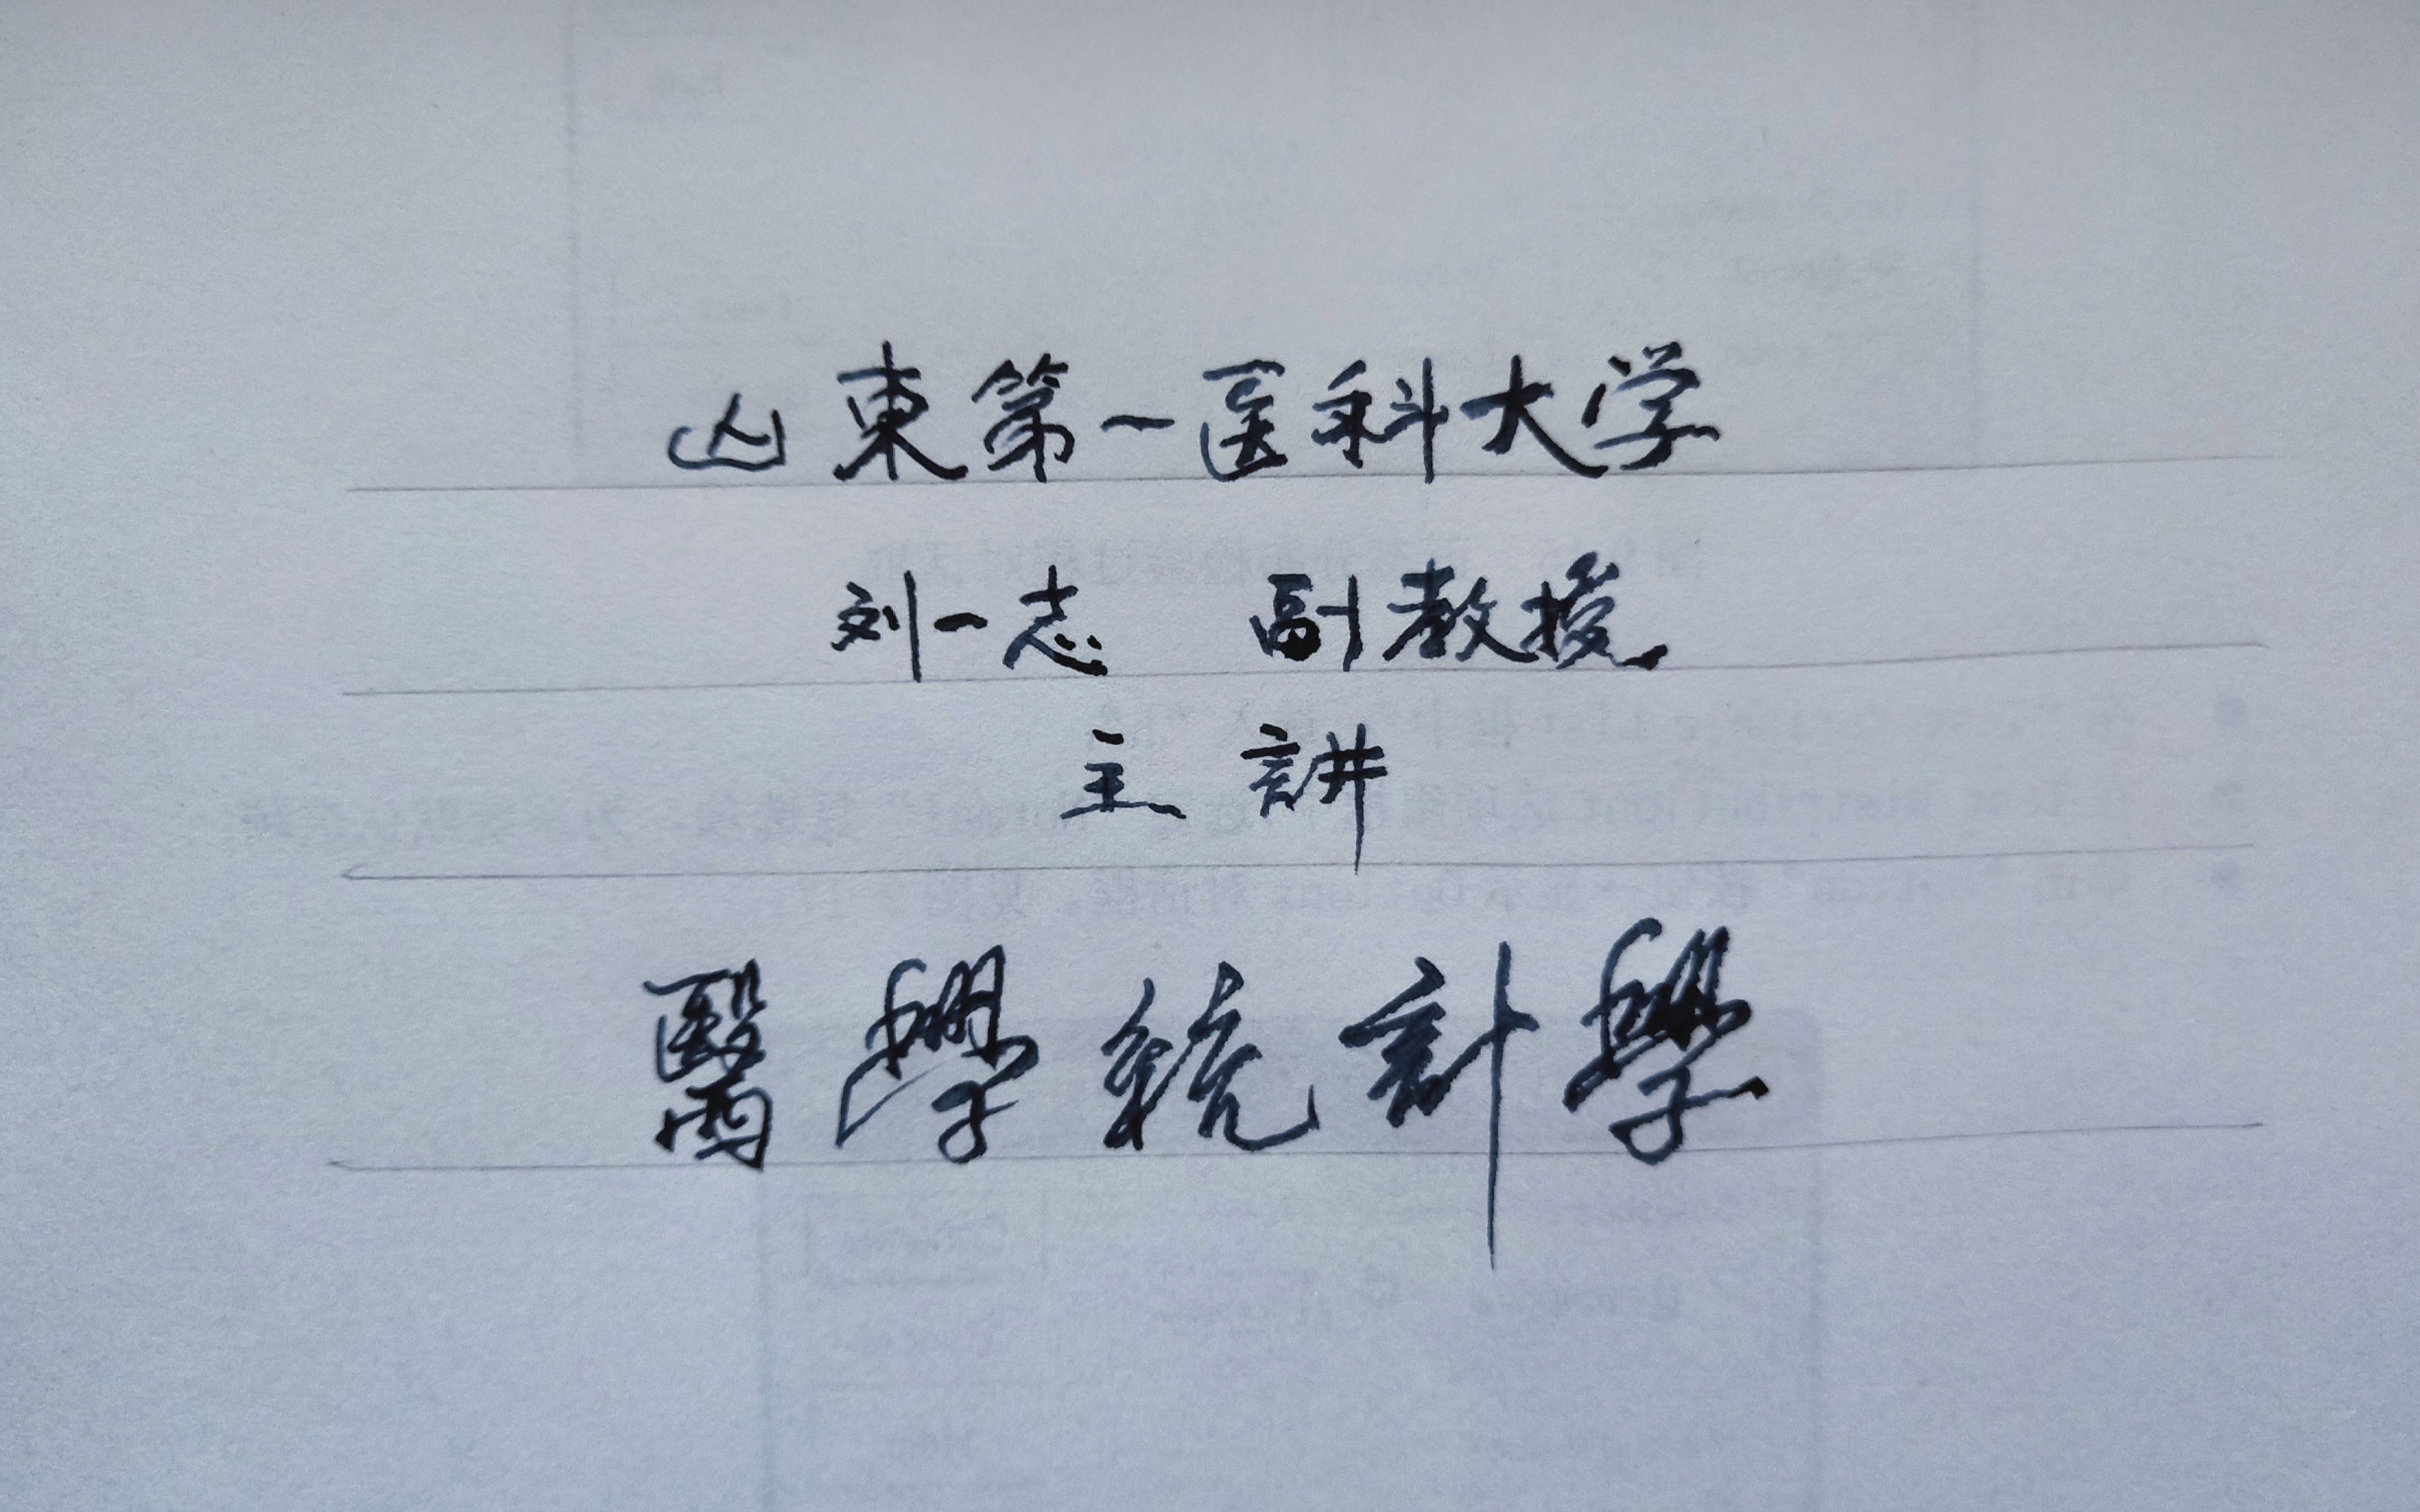 山東第一医科大学
刘一志 副教授
主講
醫學統計學